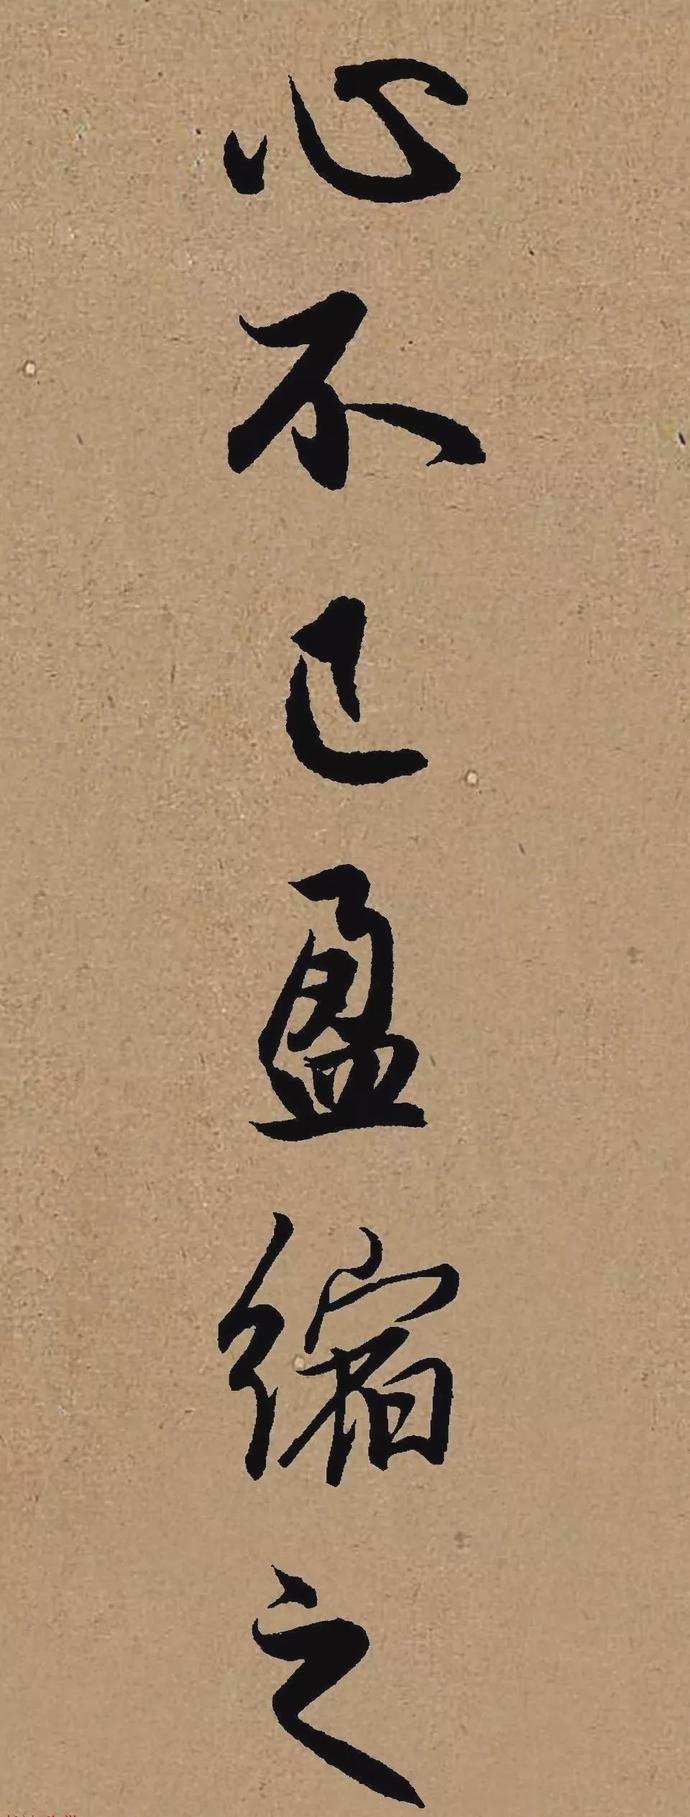 心不已盈缩之